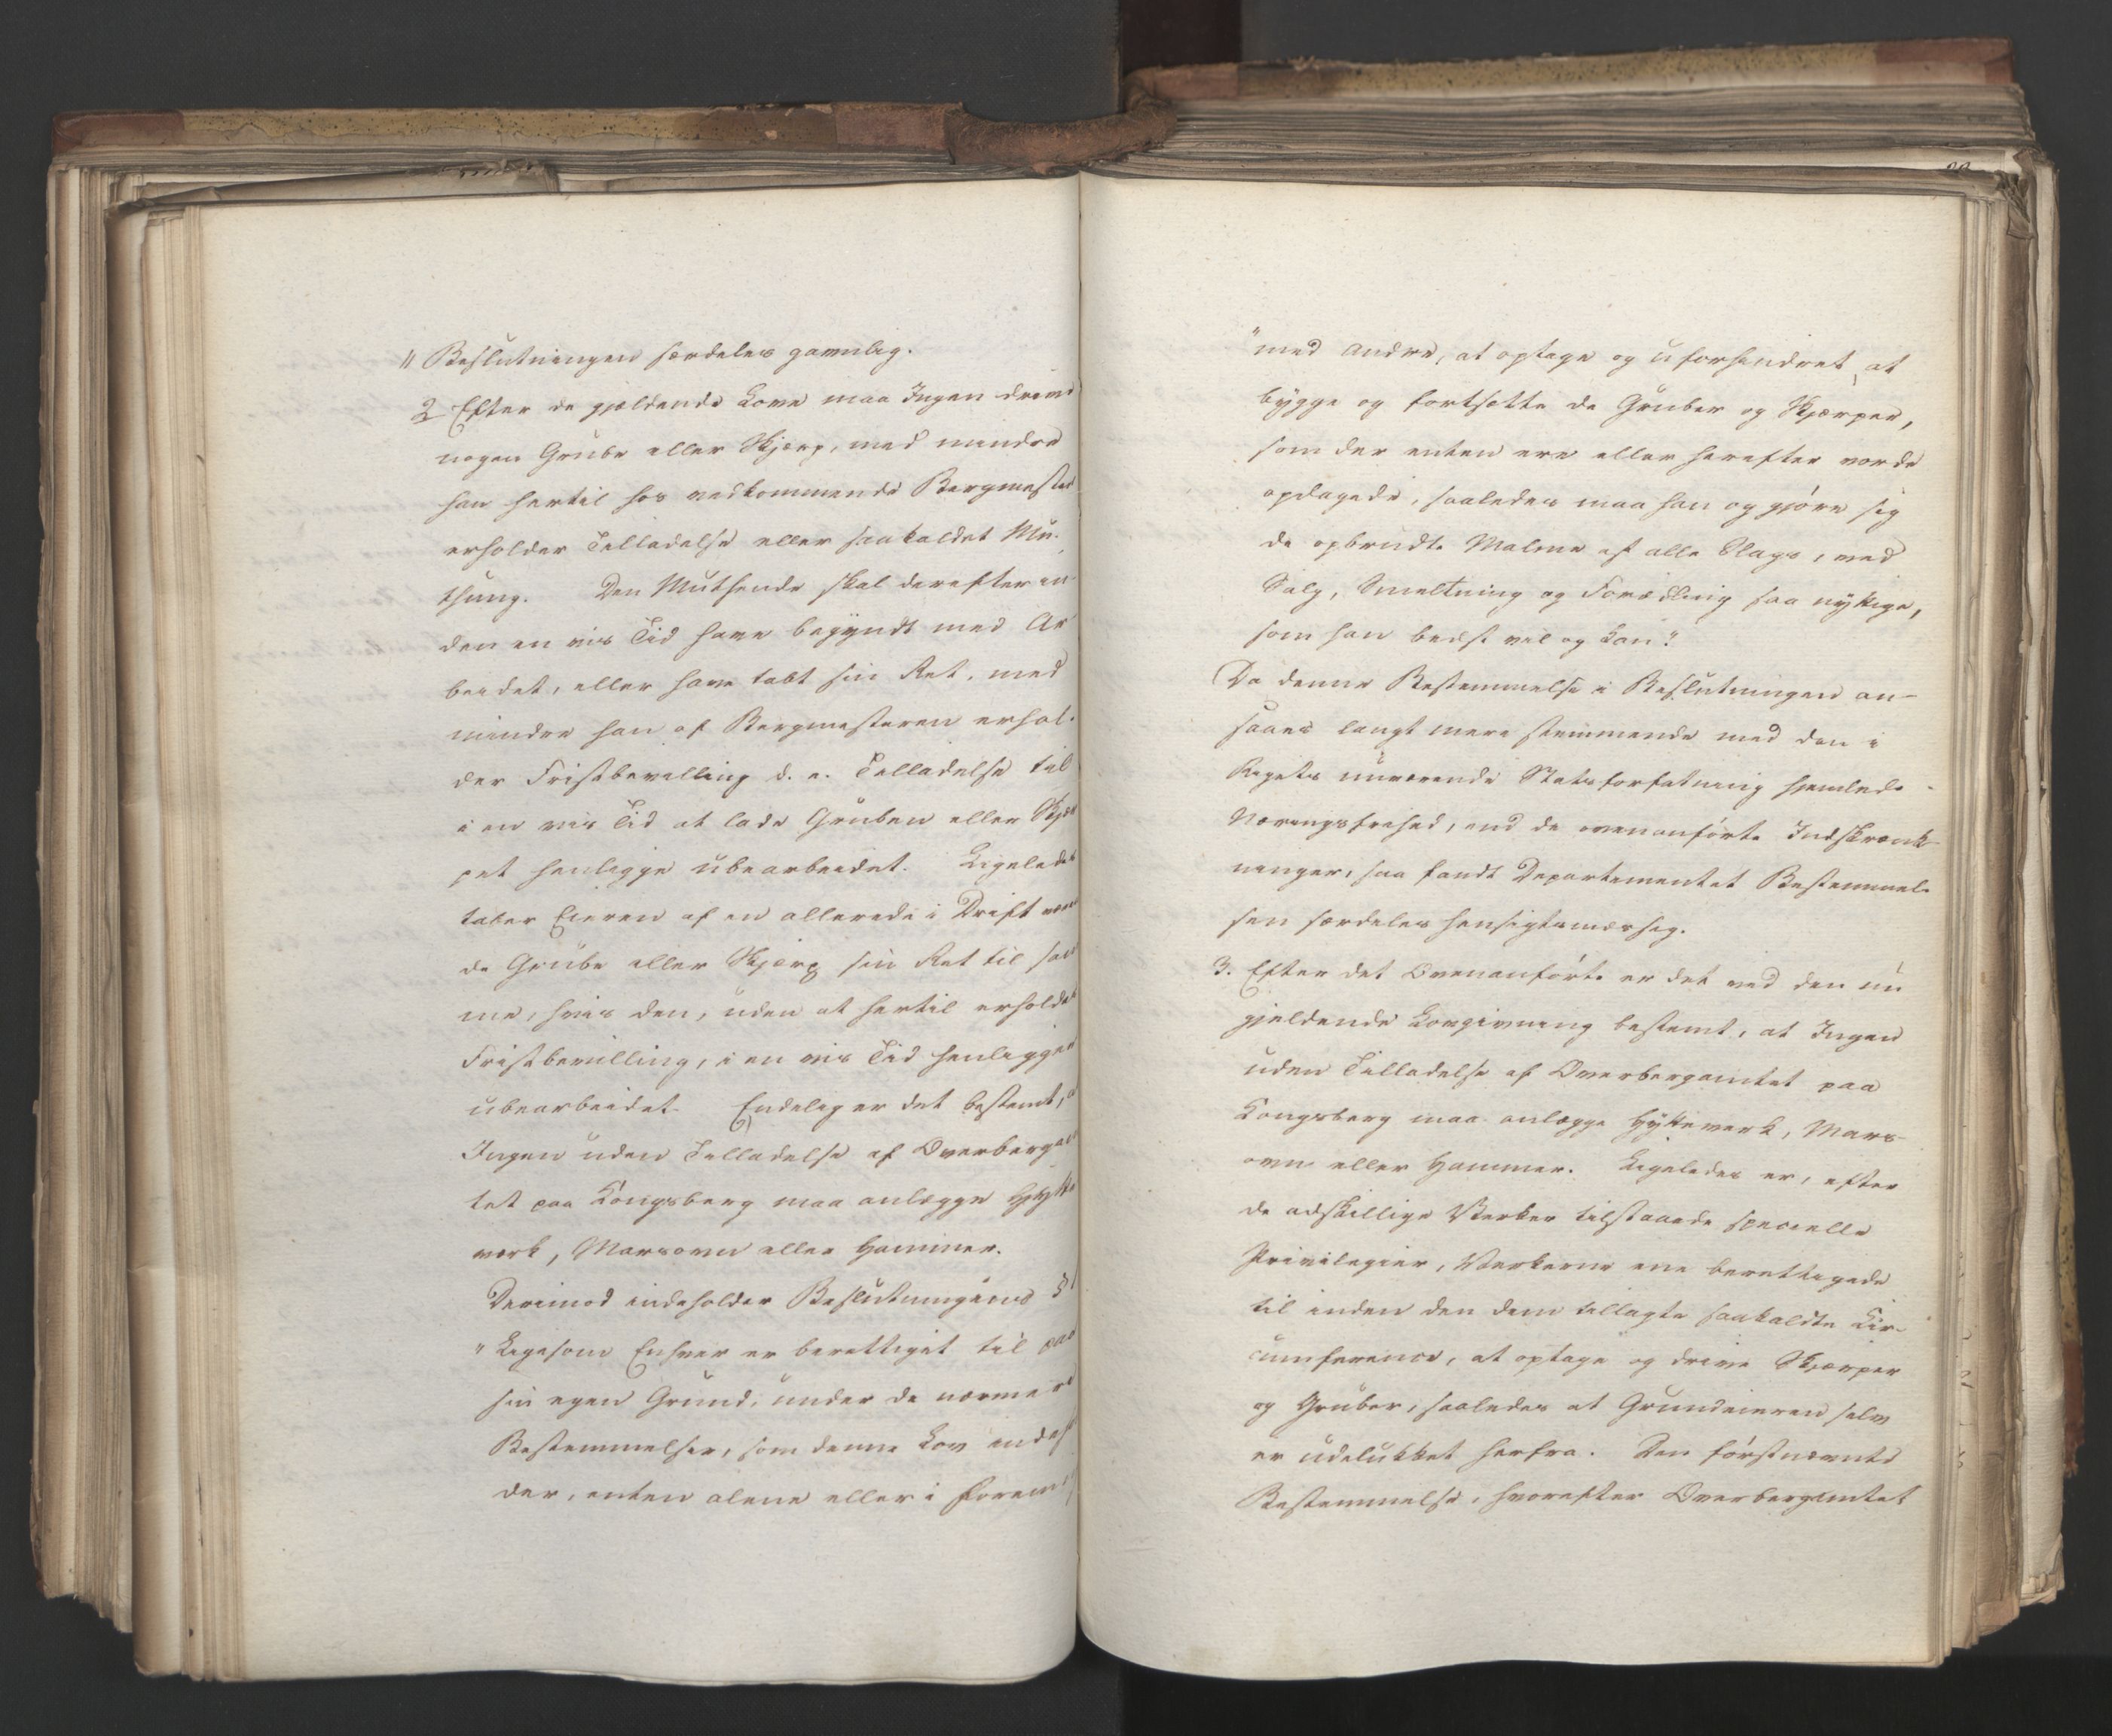 " Beslutningen særdeles gavnlig.
2 Efter de gjældende Love maa Ingen drive
nogen Grube eller Skjerp, med mindre
han hertil hos vedkommende Bergmester
erholder Tilladelse eller saakaldet Mu-
thung. Den Muthende skal derefter in-
den en vis Tid have begyndt med Ar
beidet, eller have tabt sin Ret, med
mindre han af Bergmesteren erhol-
der Fristbevilling d. e. Tilladelse til
i en vis Tid at lade Gruben eller Skjer
pet henligge übearbeidet. Ligeledes
taber Eieren af en allerede i Drift være
de Grube eller Skjerp sin Ret til sam
me, hvis den, uden at hertil erholdes
Fristbevilling, i en vis Tid henligger
übearbeidet. Endelig er det bestemt, a
Ingen uden Tilladelse af Overbergam
tet paa Kongsberg maa anlægge Hytte
værk, Marsovn eller Hammer.
Derimod indeholder Beslutningens §
" Ligesom Enhver er berettiget til paa
sin egen Grund, under de nærmere
Bestemmelser, som denne Lov indehol
der, enten alene eller i Foreni
" med Andre, at optage og uforhindret at
bygge og fortsætte de Gruber og Skjerper,
som der enten ere eller herefter vorde
opdagede, saaledes maa han og gjøre sig
de opbrudte Malme af alle Slags, ved
Salg, Smeltning og Forædling saa nyttige,
som han bedst vil og kan".
Da denne Bestemmelse i Beslutningen an-
saaes langt mere stemmende med den i
Rigets nuværende Statsforfatning hjemlede
Næringsfrihed, end de ovenanførte Indskrænk-
ninger, saa fandt Departementet Bestemmel-
sen særdeles hensigtsmæssig.
3. Efter det Ovenanførte er det ved den nu
gjeldende Lovgivning bestemt, at Ingen
uden Tilladelse af Overbergamtet paa
Kongsberg maa anlægge Hytteverk, Mars-
ovn eller Hammer. Ligeledes er, efter
de adskillige Værker tilstaaede specielle
Privilegier, Værkerne ene berettigede
til inden den dem tillagte saakaldte Cir-
cumference, at optage og drive Skjerper
og Gruber, saaledes at Grundeieren selv
er udelukket herfra. Den førstnævnte
Bestemmelse, hvorefter Overbergamtet